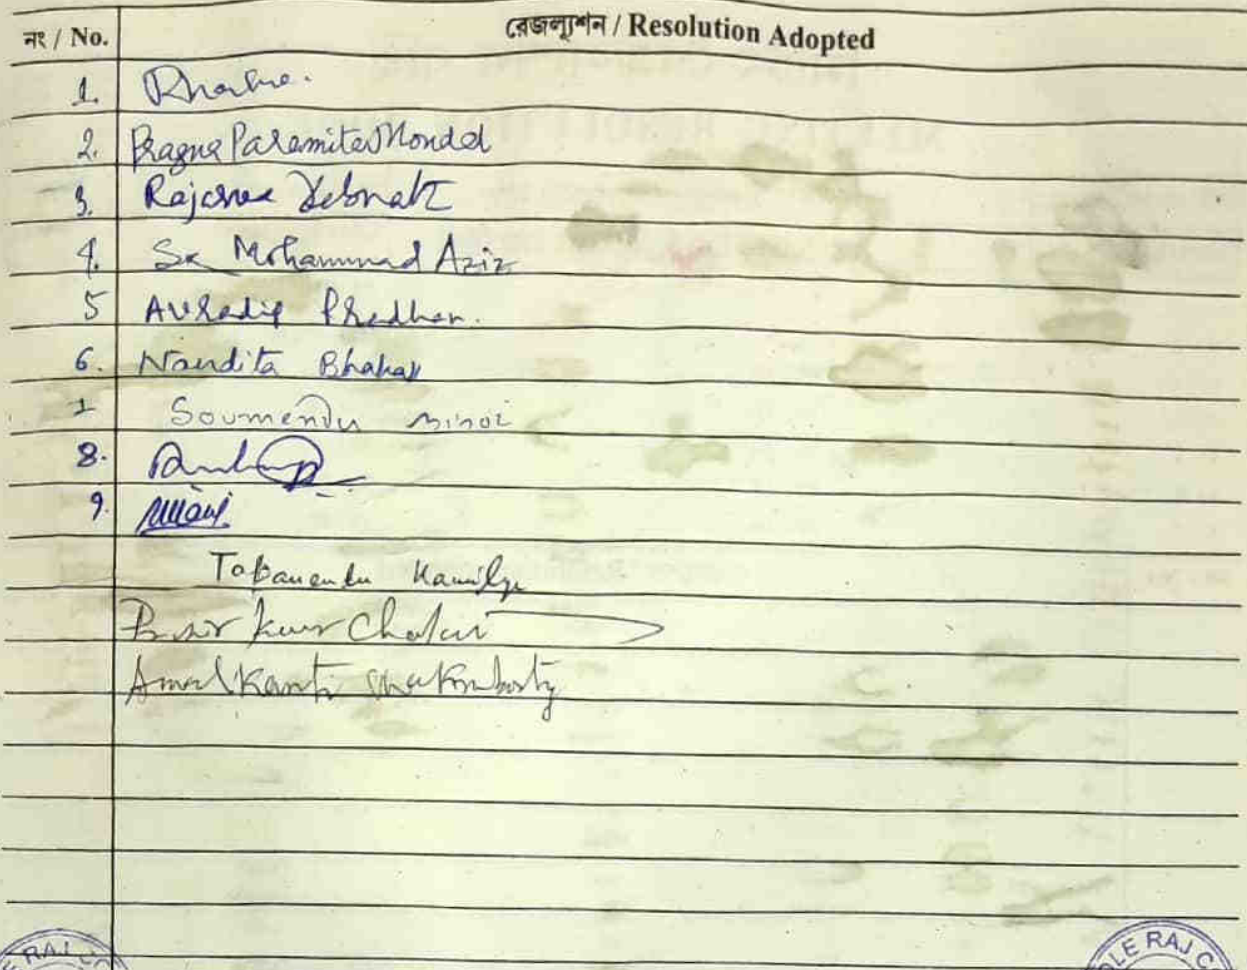 নং / No. রেজল্যুশন / Resolution Adopted
1.
2. Pragna Paramita Mondal
3. Rajasree Debnath
4. Sk Mohammad Aziz
5 Avradip Pradhan.
6. Nandita Bhakat
7 Soumendu
8.
9.
Tapanendu Kamilya
Kumar
Amal Kanti Chakraborty
E RAJ
OLE RAJ C